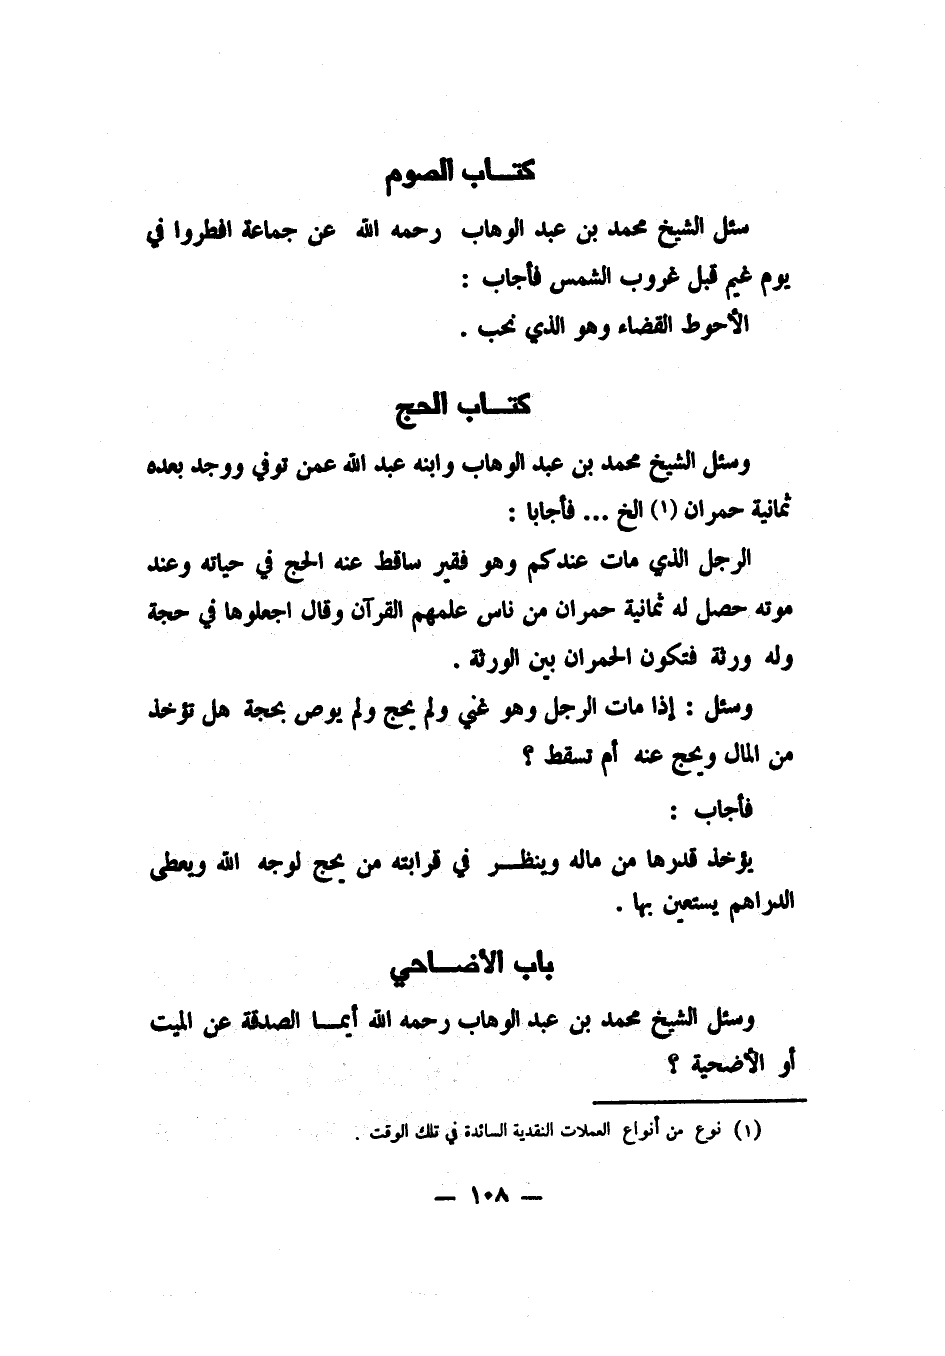 كتـــاب الصوم
سئل الشيخ محمد بن عبد الوهاب رحمه الله عن جماعة افطروا في
يوم غيم قبل غروب الشمس فأجاب :
الأحوط القضاء وهو الذي نحب .
كتـــاب الحج
وسئل الشيخ محمد بن عبد الوهاب وابنه عبد الله عمن توفي ووجد بعده
ثمانية حمران (١) الخ ... فأجابا :
الرجل الذي مات عندكم وهو فقير ساقط عنه الحج في حياته وعند
موته حصل له ثمانية حمران من ناس علمهم القرآن وقال اجعلوها في حجة
وله ورثة فتكون الحمران بين الورثة .
وسئل : إذا مات الرجل وهو غني ولم يحج ولم يوص بحجة هل تؤخذ
من المال ويحج عنه أم تسقط ؟
فأجاب :
يؤخذ قدرها من ماله وينظـــر في قرابته من يحج لوجه الله ويعطى
الدراهم يستعين بها .
باب الأضـــاحي
وسئل الشيخ محمد بن عبد الوهاب رحمه الله أيمـــا الصدقة عن الميت
أو الأضحية ؟
(١) نوع من أنواع العملات النقدية السائدة في تلك الوقت .
— ١٠٨ —